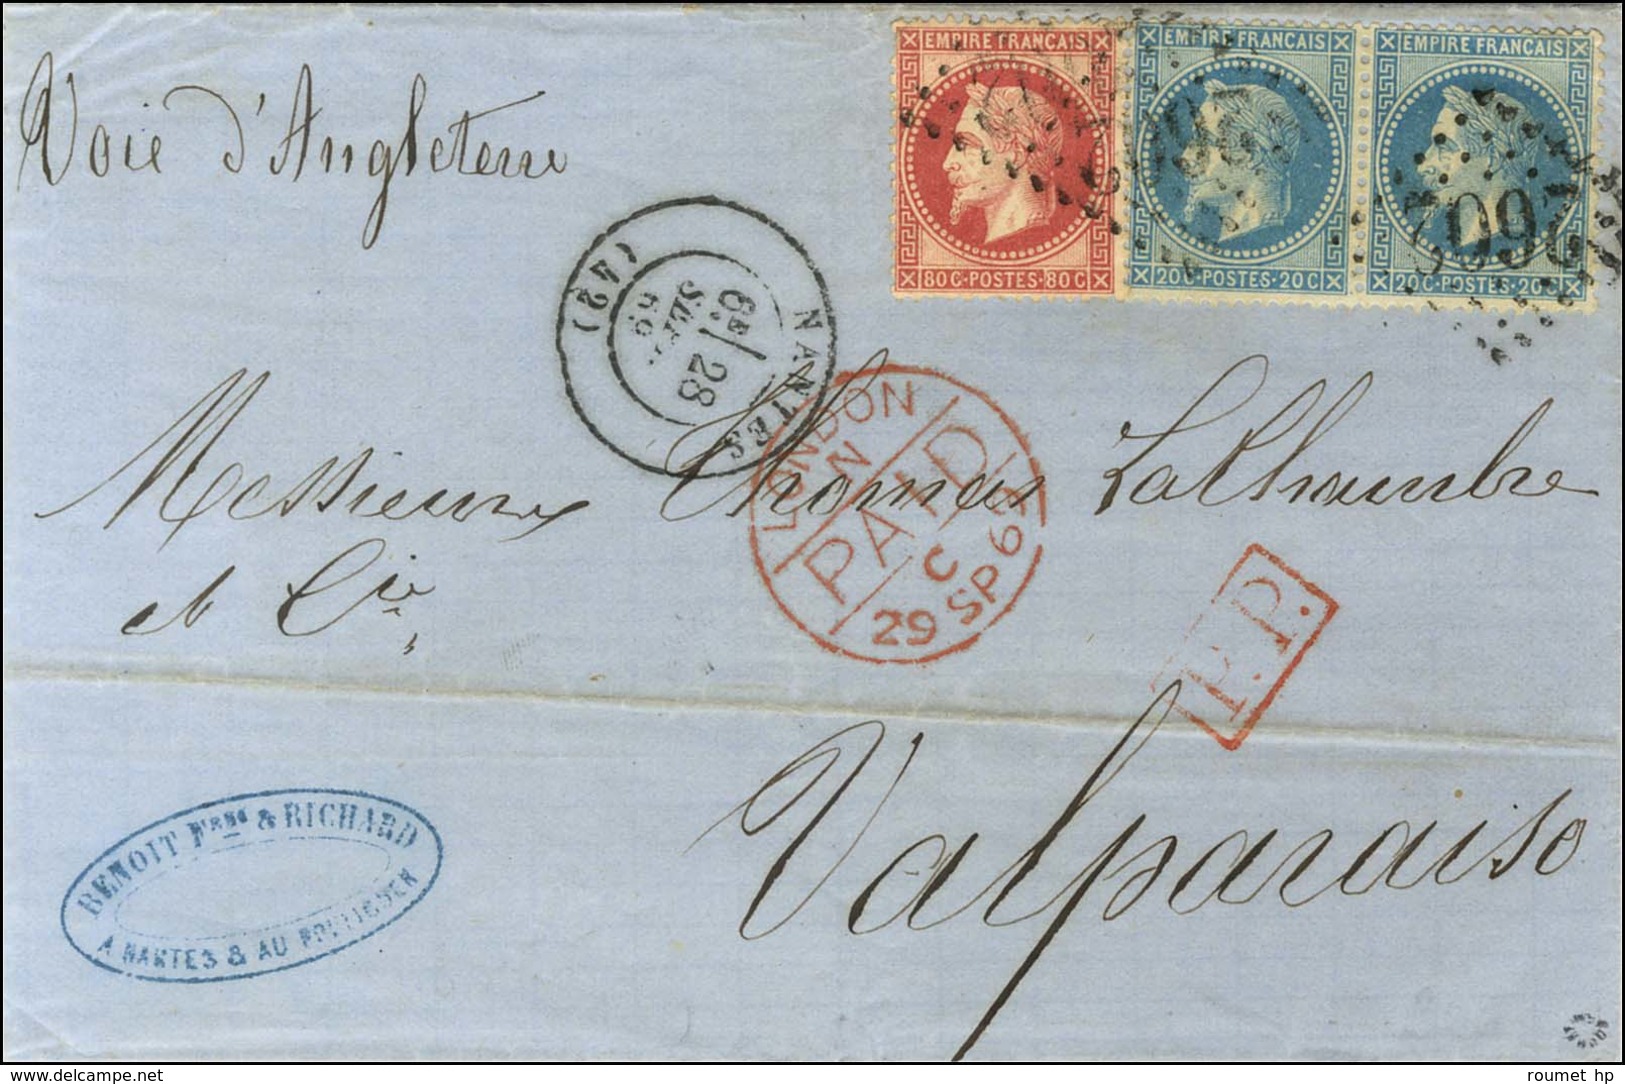 Voie d'Angleterre
EMPIRE FRANÇAIS
80 C. POSTES. 80 C
EMPIRE FRANÇAIS
20 C. POSTES. 20 C
EMPIRE FRANÇAIS
20 C. POSTES. 20 C
NANTES
6E/
28
SEPT.
69
(42)
LONDON
PAID
C
29 SP 69
Messieurs Thomas LaChambre
et Cie
P.P.
Valparaiso
BENOIT & RICHARD
A NANTES & AU
roumet hp